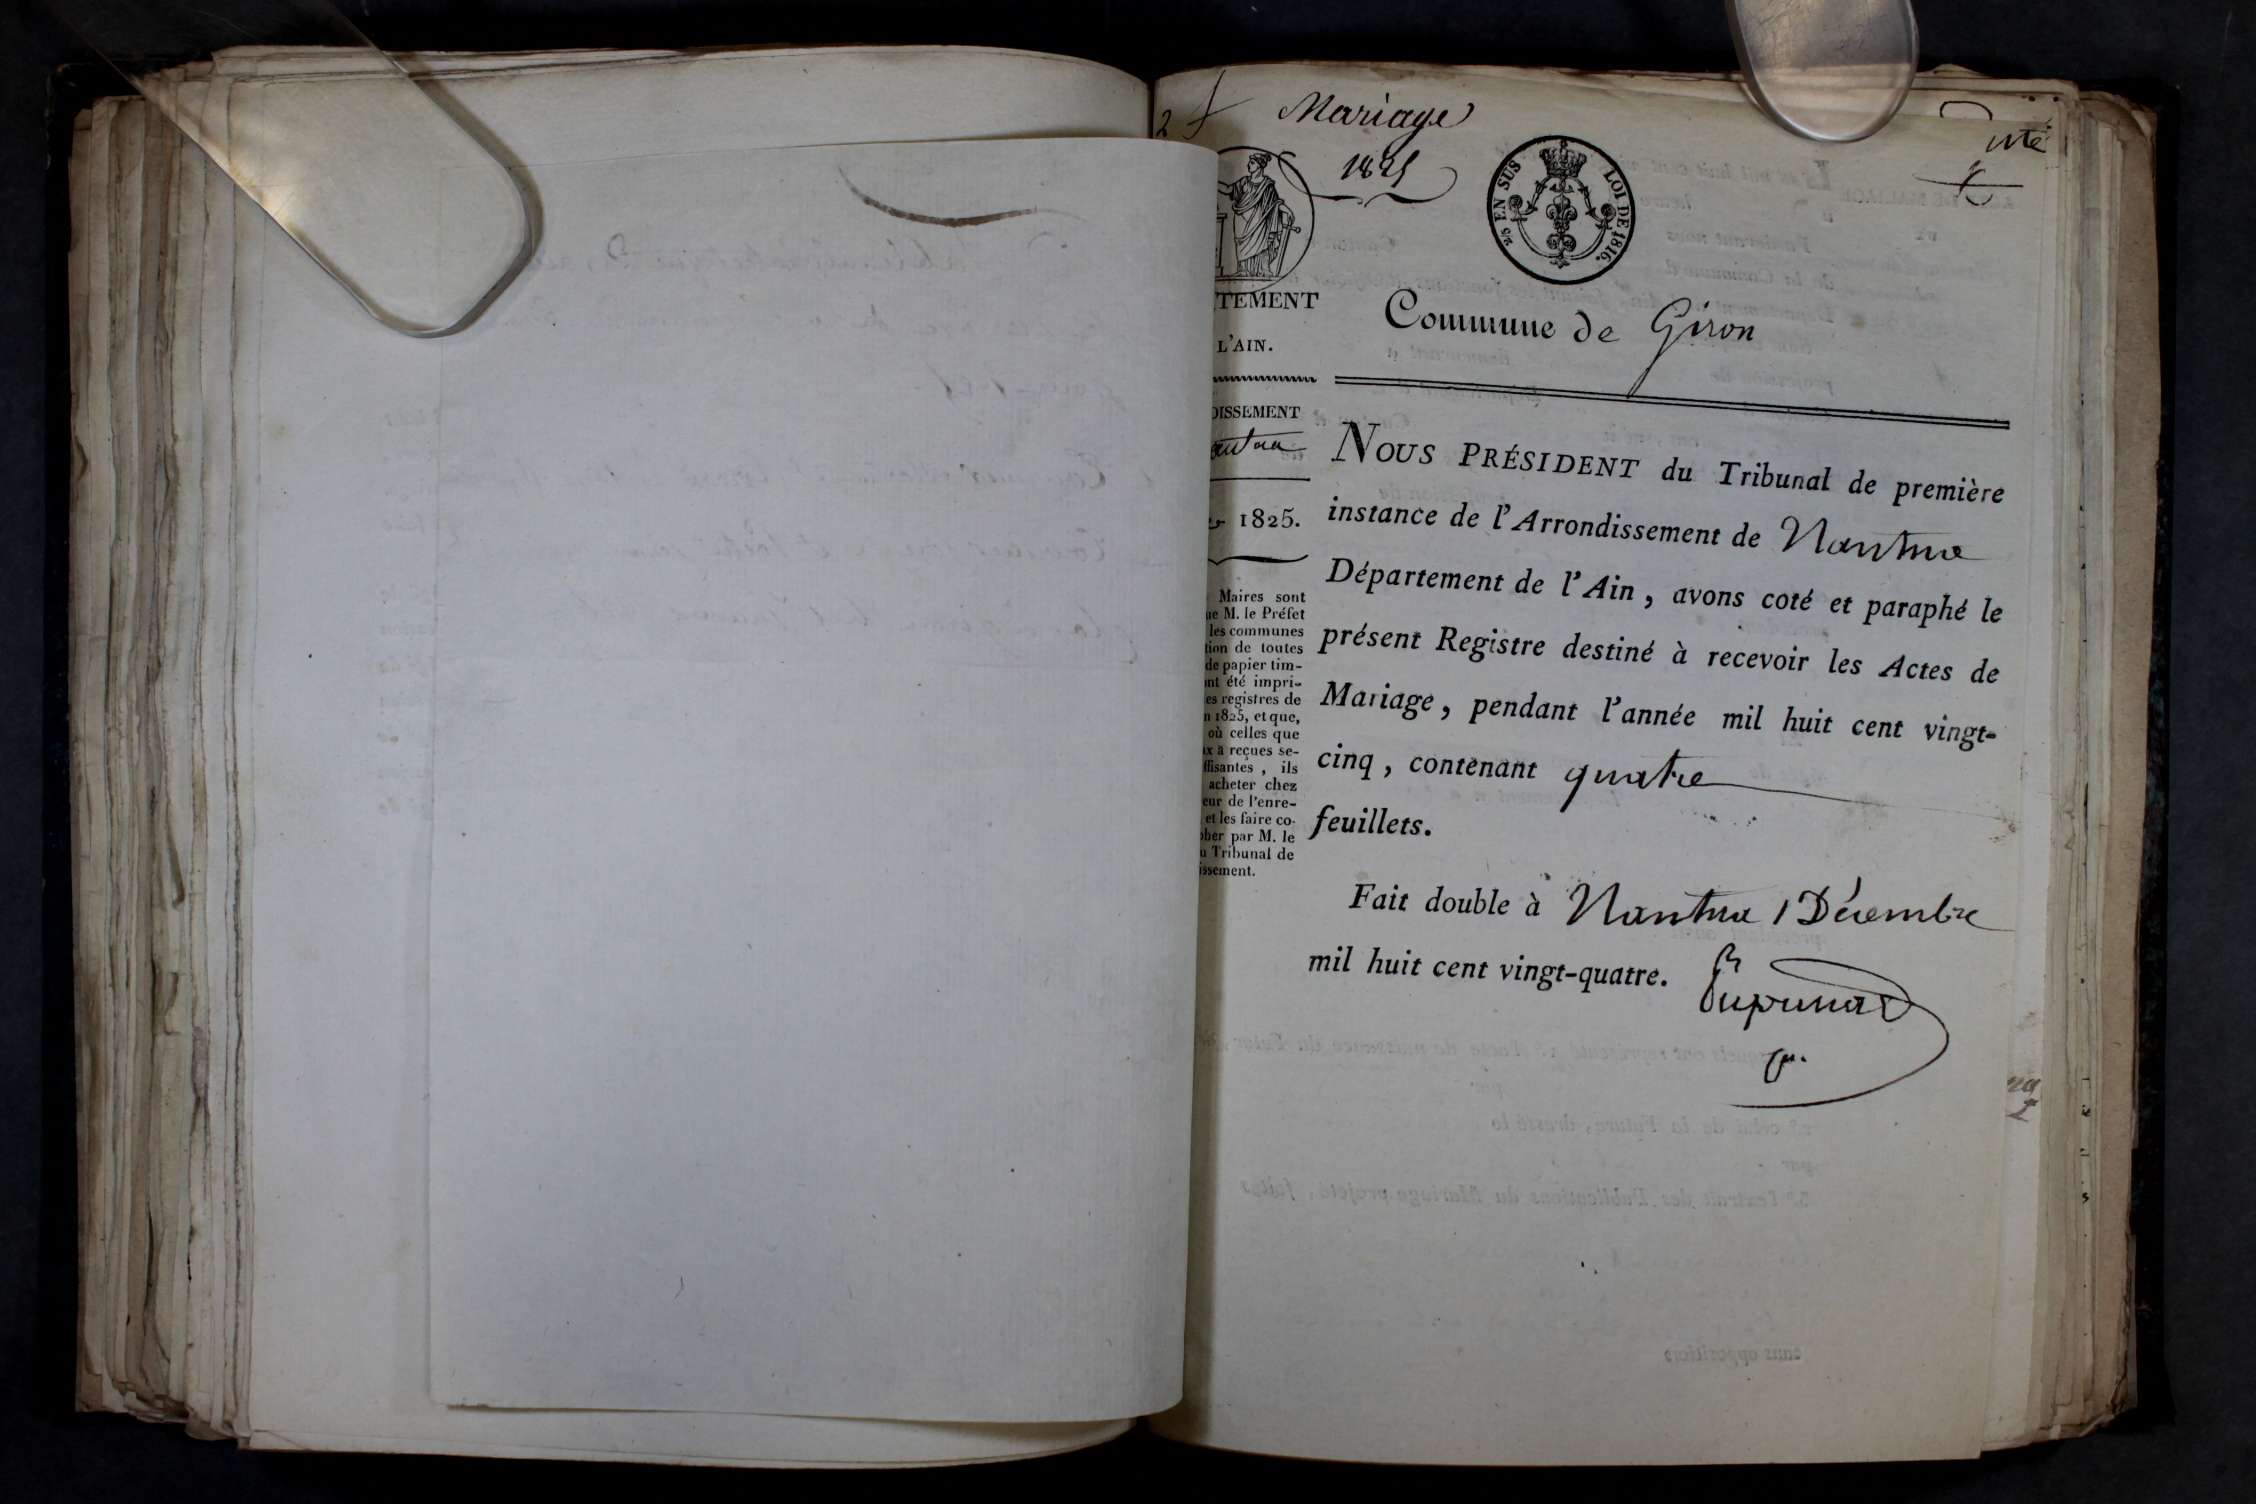 2
Mariage
1825
2/5 EN SUS LOI DE 1816.
TEMENT
L'AIN.
Commune de Giron
DISSEMENT
antua
1825.
NOUS PRÉSIDENT du Tribunal de première
instance de l'Arrondissement de Nantua
Département de l'Ain, avons coté et paraphé le
présent Registre destiné à recevoir les Actes de
Mariage, pendant l'année mil huit cent vingt-
cinq, contenant quatre
feuillets.
Fait double à Nantua 1 Décembre
mil huit cent vingt-quatre.
Maires sont
ue M. le Préfet
les communes
tion de toutes
de papier tim-
ont été impri-
es registres de
n 1825, et que,
où celles que
ux a reçues se-
ffisantes, ils
acheter chez
eur de l'enre-
et les faire co-
pher par M. le
u Tribunal de
issement.